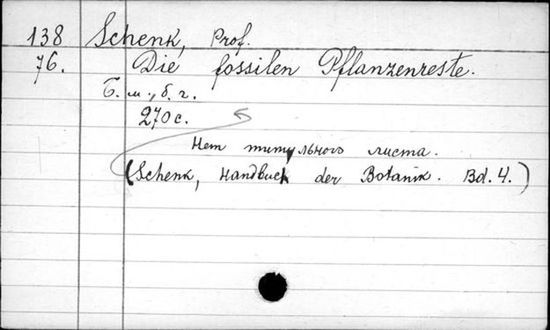 138 Schenk, Prof.
76. Die fossilen Pflanzenreste.
Б. м., б. г.
270 с.
Нет титульного листа.
(Schenk, Handbuch der Botanik. Bd. 4.)